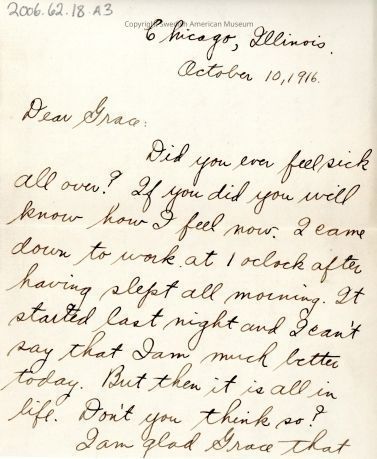 2006.62.18.A3
Copyright Swedish American Museum
Chicago, Illinois.
October 10, 1916.
Dear Grace:
Did you ever feel sick
all over? If you did you will
know how I feel now. I came
down to work at 1 oclock after
having slept all morning. It
started last night and I can't
say that I am much better
today. But then it is all in
life. Don't you think so?
I am glad Grace that